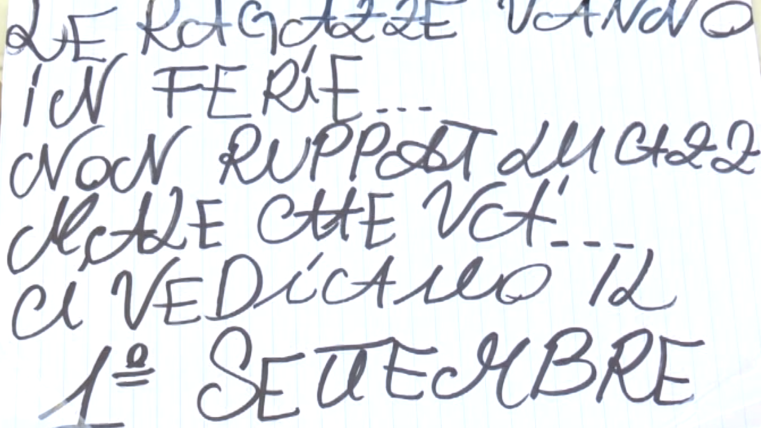 LE RAGAZZE VANNO
IN FERIE...
NON RUPPAT LU CAZZ
MALE CHE VA'...
CI VEDIAMO IL
1º SETTEMBRE